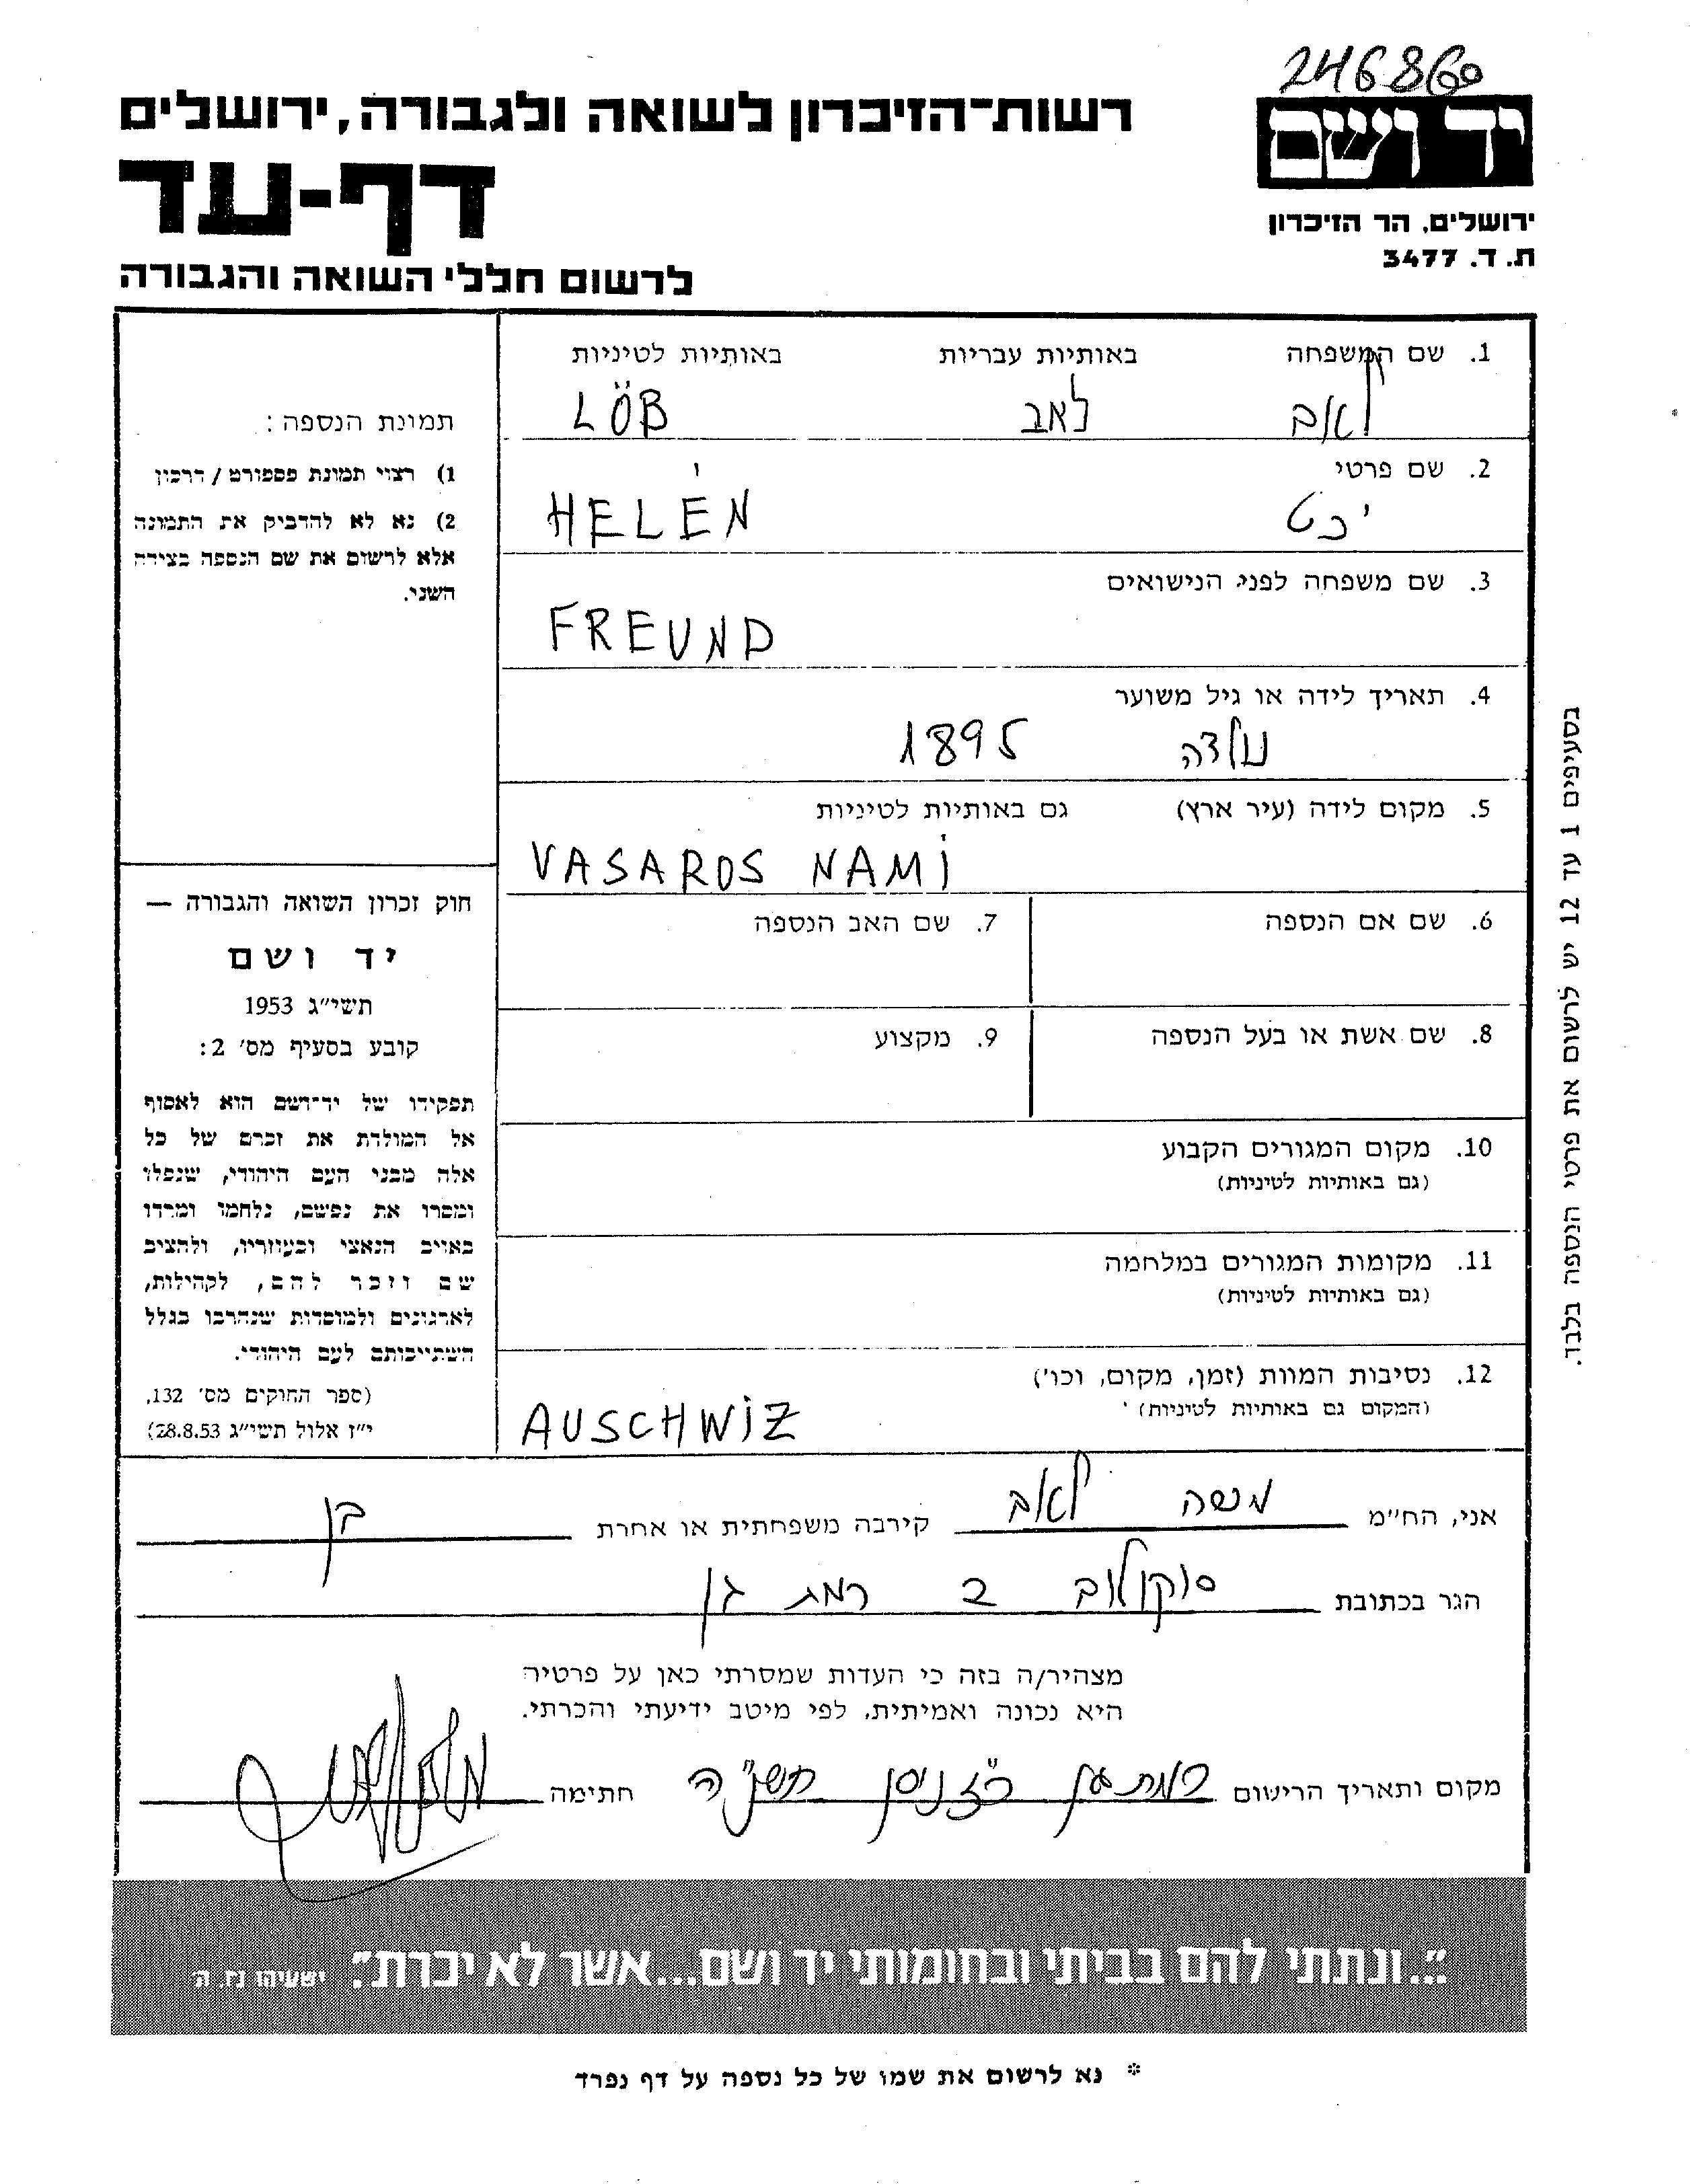 246860
יד ושם
ירושלים. הר הזיכרון
ת. ד. 3477
רשות-הזיכרון לשואה ולגבורה, ירושלים
דף-עד
לרשום חללי השואה והגבורה
1. שם המשפחה באותיות עבריות באותיות לטיניות
לאב לאב LÖB
2. שם פרטי
HELÉN
3. שם משפחה לפני הנישואים
FREUND
4. תאריך לידה או גיל משוער
נולדה 1895
5. מקום לידה (עיר ארץ) גם באותיות לטיניות
VASAROS NAMi
6. שם אם הנספה
7. שם האב הנספה
8. שם אשת או בעל הנספה
9. מקצוע
10. מקום המגורים הקבוע
(גם באותיות לטיניות)
11. מקומות המגורים במלחמה
(גם באותיות לטיניות)
12. נסיבות המוות (זמן, מקום, וכו')
(המקום גם באותיות לטיניות)
AUSCHWiZ
תמונת הנספה:
1) רצוי תמונת פספורט / דרכון
2) נא לא להדביק את התמונה
אלא לרשום את שם הנספה בצידה
השני.
חוק זכרון השואה והגבורה —
יד ושם
תשי"ג 1953
קובע בסעיף מס' 2:
תפקידו של יד-ושם הוא לאסוף
אל המולדת את זכרם של כל
אלה מבני העם היהודי, שנפלו
ומסרו את נפשם, נלחמו ומרדו
באויב הנאצי ובעוזריו, ולהציב
שם וזכר להם, לקהילות,
לארגונים ולמוסדות שנהרבו בגלל
השתייכותם לעם היהודי.
(ספר החוקים מס' 132,
י"ז אלול תשי"ג 28.8.53)
בסעיפים 1 עד 12 יש לרשום את פרטי הנספה בלבד.
אני, הח"מ משה לאב קירבה משפחתית או אחרת בן
הגר בכתובת סוקולוב 2 רמת גן
מצהיר/ה בזה כי העדות שמסרתי כאן על פרטיה
היא נכונה ואמיתית, לפי מיטב ידיעתי והכרתי.
מקום ותאריך הרישום רמת גן כ"ז ניסן תשנ"ה חתימה
"...ונתתי להם בביתי ובחומותי יד ושם...אשר לא יכרת". ישעיהו נו, ה
* נא לרשום את שמו של כל נספה על דף נפרד